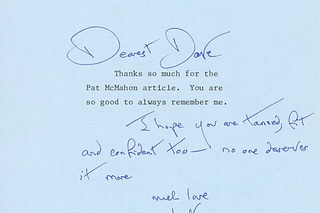 Dearest Dave
Thanks so much for the
Pat McMahon article. You are
so good to always remember me.
I hope you are tanned, fit
and confident too — no one deserves
it more
much love